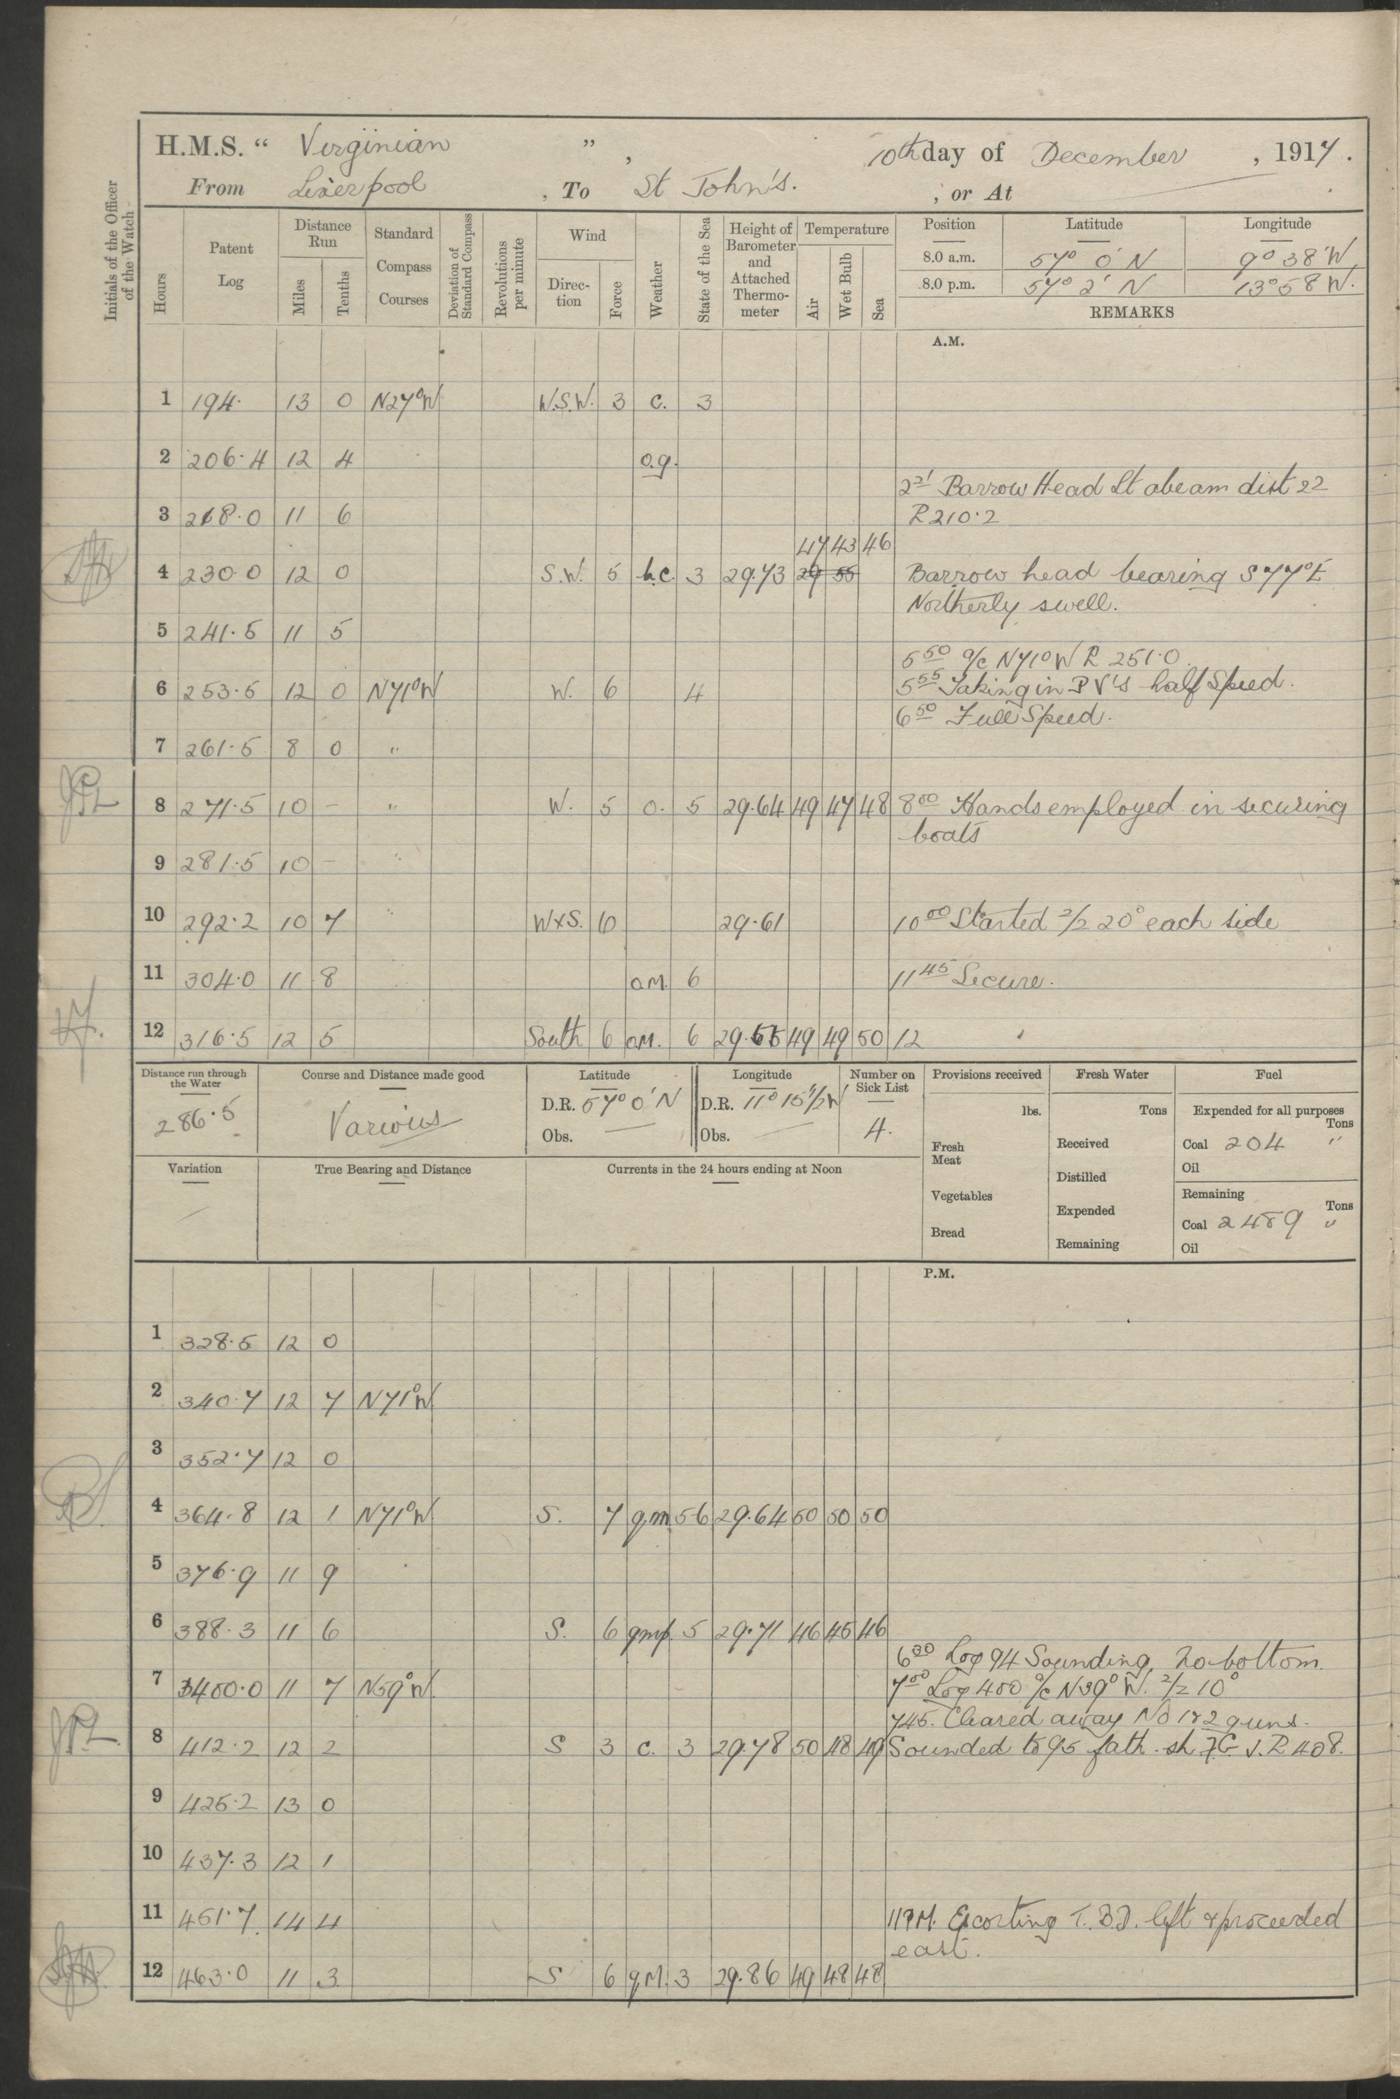 H.M.S. “ Virginian ” , 10th day of December , 1917 .
From Liverpool , To St John's. ; or At
Initials of the Officer of the Watch
Hours
Patent Log
Distance Run
Miles
Tenths
Standard Compass Courses
Deviation of Standard Compass
Revolutions per minute
Wind
Direction
Force
Weather
State of the Sea
Height of Barometer and Attached Thermometer
Temperature
Air
Wet Bulb
Sea
Position Latitude Longitude
8.0 a.m. 57° 0' N 9° 38' W
8.0 p.m. 57° 2' N 13° 58' W.
REMARKS
A.M.
1 194. 13 0 N27°W W.S.W. 3 c. 3
2 206.4 12 4 o.g.
2 21 Barrow Head Lt abeam dist 22
3 218.0 11 6 R 210.2
47 43 46
4 230.0 12 0 S.W. 5 b.c. 3 29.73 29 55 Barrow head bearing S 77°E
Northerly swell.
5 241.5 11 5
5 50 a/c N71°W R 251.0
6 253.5 12 0 N71°W W. 6 4 5 55 Taking in P V's half Speed.
6 50 Full Speed.
7 261.5 8 0 "
8 271.5 10 – " W. 5 o. 5 29.64 49 47 48 8 00 Hands employed in securing
boats
9 281.5 10 – "
10 292.2 10 7 " WxS. 6 29.61 10 00 Started 2/2 20° each side
11 304.0 11 8 om. 6 11 45 Secure.
12 316.5 12 5 South 6 om. 6 29.65 49 49 50 12
Distance run through the Water
286.5
Course and Distance made good
Various
Latitude
D.R. 57° 0' N
Obs. —
Longitude
D.R. 11° 15 1/2' W
Obs. —
Number on Sick List
4.
Provisions received
lbs.
Fresh Meat
Vegetables
Bread
Fresh Water
Tons
Received
Distilled
Expended
Remaining
Fuel
Expended for all purposes
Tons
Coal 204 "
Oil
Remaining
Tons
Coal 2489 "
Oil
Variation
True Bearing and Distance
Currents in the 24 hours ending at Noon
P.M.
1 328.5 12 0
2 340.7 12 7 N71°W.
3 352.7 12 0
4 364.8 12 1 N71°W. S. 7 qm 56 29.64 50 50 50
5 376.9 11 9
6 388.3 11 6 S. 6 qmp. 5 29.71 46 45 46
6 30 Log 94 Sounding no bottom.
7 400.0 11 7 N59°W. 7 00 Log 400 a/c N39°W. 2/2 10°
745. Cleared away No 1 & 2 guns.
8 412.2 12 2 S 3 c. 3 29.78 50 48 49 Sounded to 95 fath. sh 7G S. R 408.
9 425.2 13 0
10 437.3 12 1
11 451.7 14 4 11PM. Escorting T.B.D. left & proceeded
east.
12 463.0 11 3 S 6 qM. 3 29.86 49 48 48